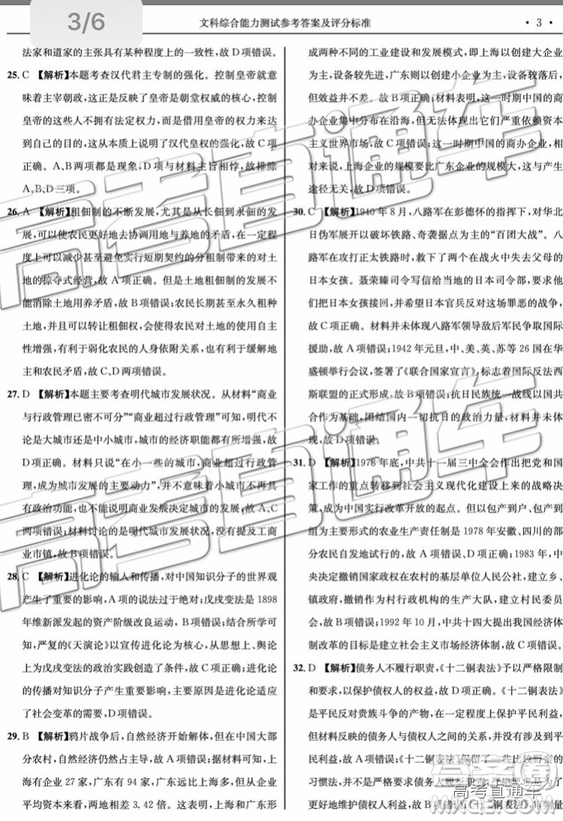 3/6
文科综合能力测试参考答案及评分标准
· 3 ·
法家和道家的主张具有某种程度上的一致性，故D项错误。
25. C 【解析】本题考查汉代君主专制的强化。控制皇帝就意
味着主宰朝政，这正是反映了皇帝是朝堂权威的核心，控制
皇帝的这些人不拥有法定权力，而是借用皇帝的权力来达
到自己的目的，这从本质上说明了汉代皇权的强化，故C项
正确。A、B两项都是现象，D项与材料主旨相悖，故排除
A、B、D三项。
26. A 【解析】租佃制的不断发展，尤其是从长佃到永佃的发
展，可以使农民更好地去协调用地与养地的矛盾，在一定程
度上可以减少甚至避免实行短期契约的分租制带来的对土
地的掠夺式经营，故A项正确。但是租佃制的发展不
能消除土地用养矛盾，故B项错误；农民长期甚至永久租种
土地，并且可以转让租佃权，可以增强农民对土地的使用自主
性增强，有利于弱化农民的人身依附关系，也有利于缓解地
主和农民的矛盾，故C、D两项错误。
27. D 【解析】本题主要考查明代城市发展状况。从材料“商业
与行政管理已密不可分”“商业超过行政管理”可知，明代不
论是大城市还是中小城市，城市的经济职能都有所增强，故
D项正确。材料只说“在小一些的城市，商业超过行政管
理，成为城市发展的主要动力”，并不意味着小城市不再具
有政治功能，也不能说明商业发展决定城市的发展，故A、C
两项错误；材料讨论的是明代城市发展状况，没有提及工商
业市镇，故B项错误。
28. C 【解析】进化论的输入和传播，对中国知识分子的世界观
产生了重要的影响，A项的说法过于绝对；戊戌变法是1898
年维新派发起的资产阶级改良运动，B项错误；结合所学可
知，严复的《天演论》以宣传进化论为核心，从思想上、舆论
上为戊戌变法的政治实践创造了条件，故C项正确；进化论
的传播对知识分子产生重要影响，主要原因是进化论适应
了社会变革的需要，D项错误。
29. B 【解析】鸦片战争后，自然经济开始解体，但在中国大部
分农村，自然经济仍然占主导，故A项错误；据材料可知，上
海有企业27家，广东有94家，广东远多于上海，但从企业
平均资本来看，两地大致相差3.42倍。这表明，上海和广东形
成两种不同的工业发展模式，即上海以创建大中型企业为
主，设备较先进，广东则以创建小企业为主，设备较落后，
但效益并不差。故B项正确；材料表明，这一时期中国的商
办企业集中分布在沿海，但无法体现出它们严重依赖资本
主义世界市场，故C项错误；这一时期中国的商办企业，相
对来说，上海企业的规模要比广东企业的规模大，这与产生
途径无关，故D项错误。
30. C 【解析】1940年8月，八路军在彭德怀的指挥下，对华北
日伪军展开以破坏铁路、奇袭据点为主的“百团大战”。八
路军在攻打正太铁路时，救下了两个在战火中失去父母的
日本女孩。聂荣臻司令写信给当地的日本司令部，要求他
们把日本女孩接回，并希望日本官兵反对这场罪恶的战争，
故C项正确。材料并未体现八路军领导军民争取国际
援助，故A项错误；1942年元旦，中、美、英、苏等26国在华
盛顿举行会议，签署了《联合国家宣言》，标志着国际反法西
斯联盟的正式形成，故B项错误；抗日民族统一战线以国共
合作为基础，团结国内一切抗日的政治力量，材料并未体
现，故D项错误。
31. D 【解析】1978年底，中共十一届三中全会作出把党和国
家工作的重点转移到社会主义现代化建设上来的战略决
策，成为中国实行改革开放的起点。但以包产到户、包产到
组为主要形式的农业生产责任制是1978年安徽、四川的部分
农民自发地试行的，故A项错误；1983年，中
央决定撤销国家政权在农村的基层单位人民公社，建立乡、
镇政府，撤销作为村行政机构的生产大队，建立村民委员
会，故B项错误；1992年10月，中共十四大提出我国经济体
制改革的目标是建立社会主义市场经济体制，故C项错误。
32. D 【解析】债务人不履行职责，《十二铜表法》予以严格限制
和要求，以保护债权人的权益，故D项正确。《十二铜表法》
是平民反对贵族斗争的产物，在一定程度上保护平民利益，
但文中的债务人与债权人之间的关系，并没有涉及到平民
权利，故A项错误；《十二铜表法》保留了一些野蛮的
习惯法，并不是严格要求债务人履行职责，
更好地维护债权人的利益，故B项错误；
高考直通车